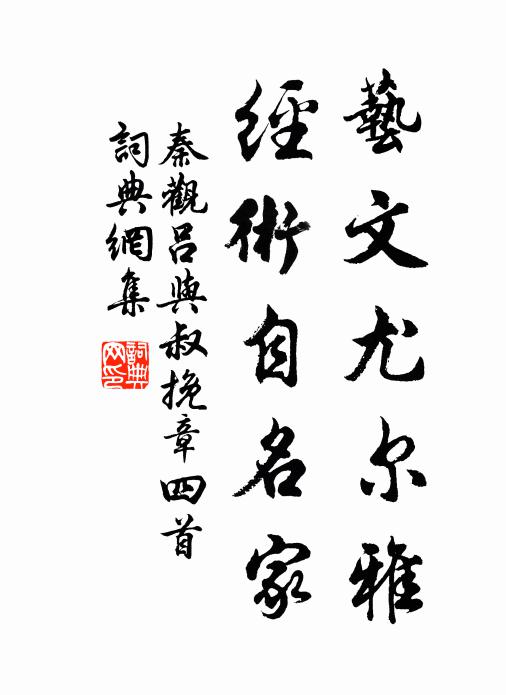 藝文尤尔雅
經術自名家
秦觀吕與叔挽章四首
詞典網集
詞典
网印